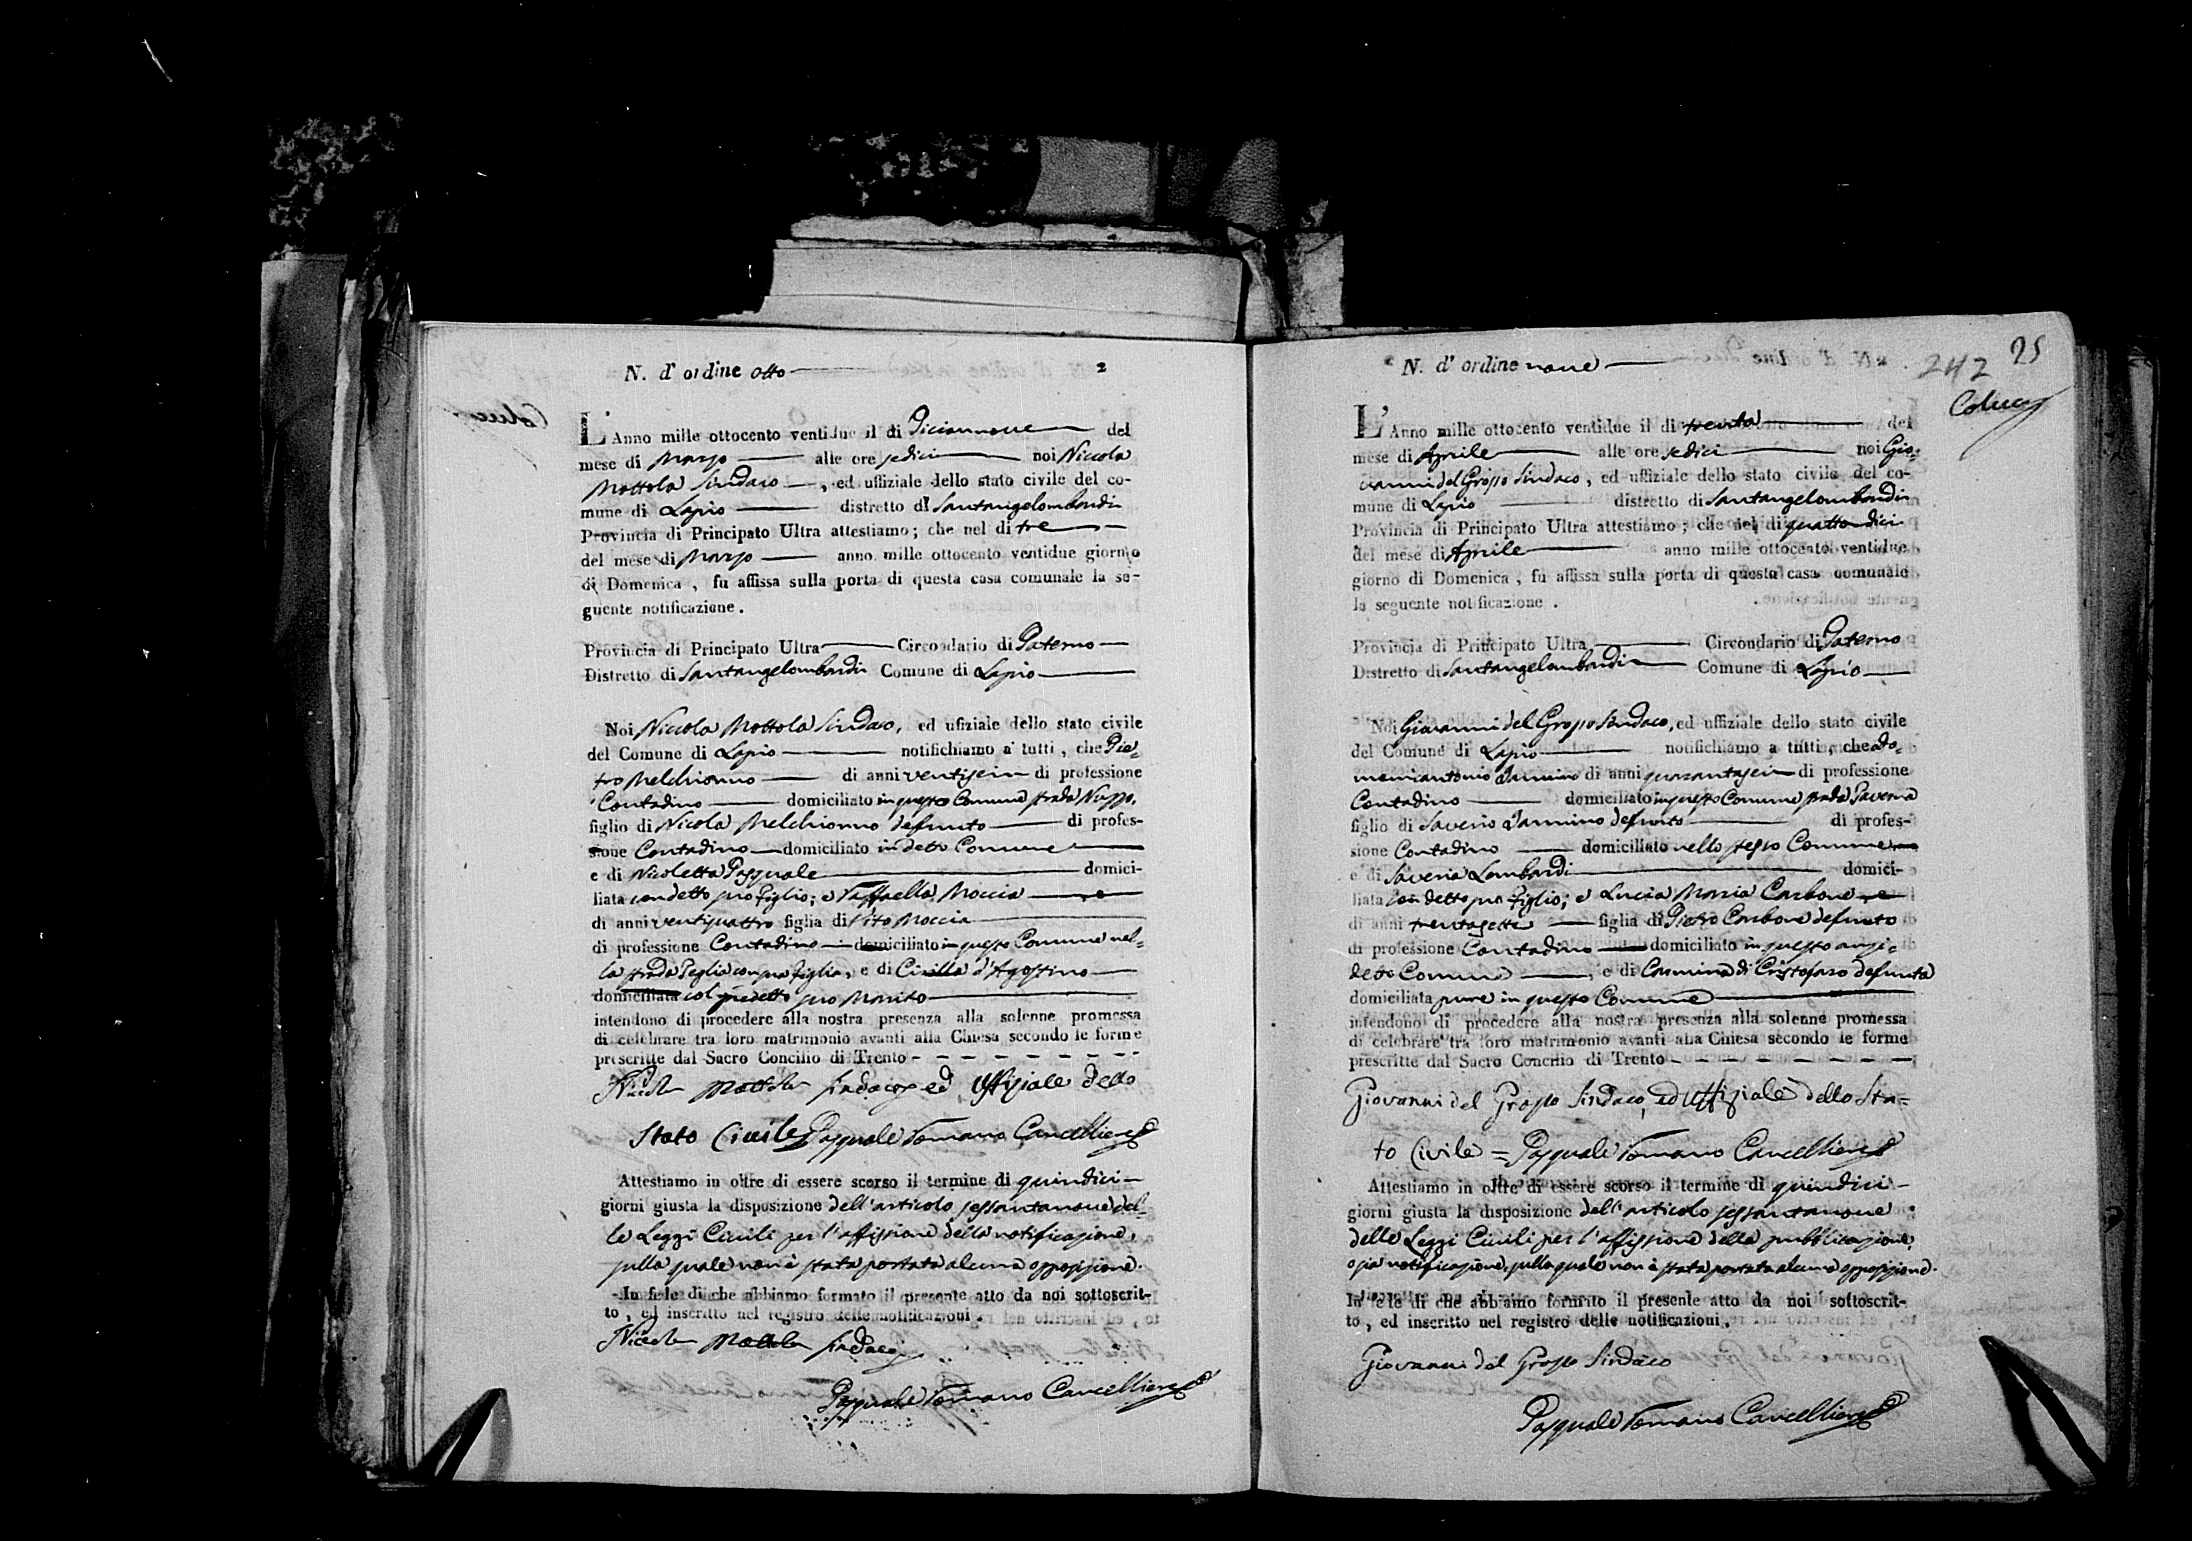 N. d' ordine otto
2
L'Anno mille ottocento ventidue il di Diciannove del
mese di Marzo alle ore sedici noi Niccola
Mottola Sindaco, ed uffiziale dello stato civile del co-
mune di Lapio distretto di Santangelombardi
Provincia di Principato Ultra attestiamo; che nel di tre
del mese di Marzo anno mille ottocento ventidue giorno
di Domenica, fu affissa sulla porta di questa casa comunale la se-
guente notificazione.
Provincia di Principato Ultra Circondario di Paterno
Distretto di Santangelombardi Comune di Lapio
Noi Niccola Mottola Sindaco, ed ufiziale dello stato civile
del Comune di Lapio notifichiamo a tutti, che Pie=
tro Melchionno di anni ventisei di professione
Contadino domiciliato in questo Comune strada Nuzzo,
figlio di Nicola Melchionno defunto di profes-
sione Contadino domiciliato in detto Comune
e di Nicoletta Pasquale domici-
liata con detto suo Figlio; e Raffaella Moccia
di anni ventiquattro figlia di Vito Moccia
di professione Contadino domiciliato in questo Comune nel=
la strada Teglia con sua figlia, e di Cirilla d'Agostino
domiciliata col predetto suo Marito
intendono di procedere alla nostra presenza alla solenne promessa
di celebrare tra loro matrimonio avanti alla Chiesa secondo le forme
prescritte dal Sacro Concilio di Trento
Nicola Mottola Sindaco ed Uffiziale dello
Stato Civile Pasquale Romano Cancelliere
Attestiamo in oltre di essere scorso il termine di quindici
giorni giusta la disposizione dell'articolo sessantanove del=
le Leggi Civili per l'affissione della notificazione,
sulla quale non è stata portata alcuna opposizione.
In fede di che abbiamo formato il presente atto da noi sottoscrit-
to, ed inscritto nel registro delle notificazioni.
Nicola Mottola Sindaco
Pasquale Romano Cancelliere
N. d' ordine nove
242
25
Colucci
L'Anno mille ottocento ventidue il di trenta del
mese di Aprile alle ore sedici noi Gio=
vanni del Grosso Sindaco, ed uffiziale dello stato civile del co-
mune di Lapio distretto di Santangelombardi
Provincia di Principato Ultra attestiamo; che nel di quattordici
del mese di Aprile anno mille ottocento ventidue
giorno di Domenica, fu affissa sulla porta di questa casa comunale
la seguente notificazione.
Provincia di Principato Ultra Circondario di Paterno
Distretto di Santangelombardi Comune di Lapio
Noi Giovanni del Grosso Sindaco, ed uffiziale dello stato civile
del Comune di Lapio notifichiamo a tutti, che Do=
menicantonio Iannino di anni quarantasei di professione
Contadino domiciliato in questo Comune strada Taverna
figlio di Saverio Iannino defunto di profes-
sione Contadino domiciliato nello stesso Comune
e di Saveria Lombardi domici-
liata con detto suo Figlio; e Lucia Maria Carbone
di anni trentasette figlia di Pietro Carbone defunto
di professione Contadino domiciliato in questo anzi=
detto Comune, e di Carmina di Cristofaro defunta
domiciliata pure in questo Comune
intendono di procedere alla nostra presenza alla solenne promessa
di celebrare tra loro matrimonio avanti alla Chiesa secondo le forme
prescritte dal Sacro Concilio di Trento
Giovanni del Grosso Sindaco, ed Uffiziale dello Sta=
to Civile = Pasquale Romano Cancelliere
Attestiamo in oltre di essere scorso il termine di quindici
giorni giusta la disposizione dell'articolo sessantanove
delle Leggi Civili per l'affissione della pubblicazione,
o sia notificazione, sulla quale non è stata portata alcuna opposizione.
In fede di che abbiamo formato il presente atto da noi sottoscrit-
to, ed inscritto nel registro delle notificazioni.
Giovanni del Grosso Sindaco
Pasquale Romano Cancelliere